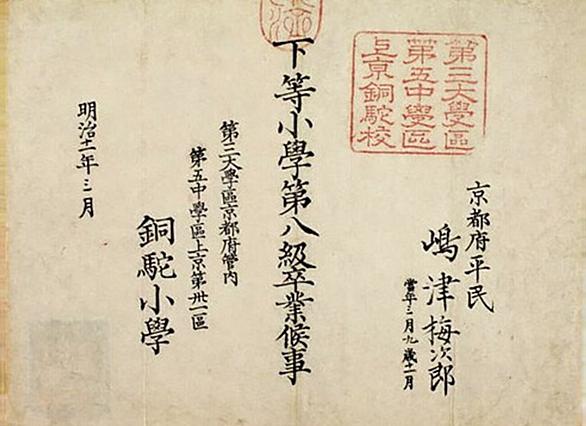 第三大學區
第五中學區
上京銅駝校
京都府平民
嶋津梅次郎
當年三月九歳十一月
下等小學第八級卒業候事
第三大學區京都府管内
第五中學區上京第丗一區
銅駝小學
明治十一年三月